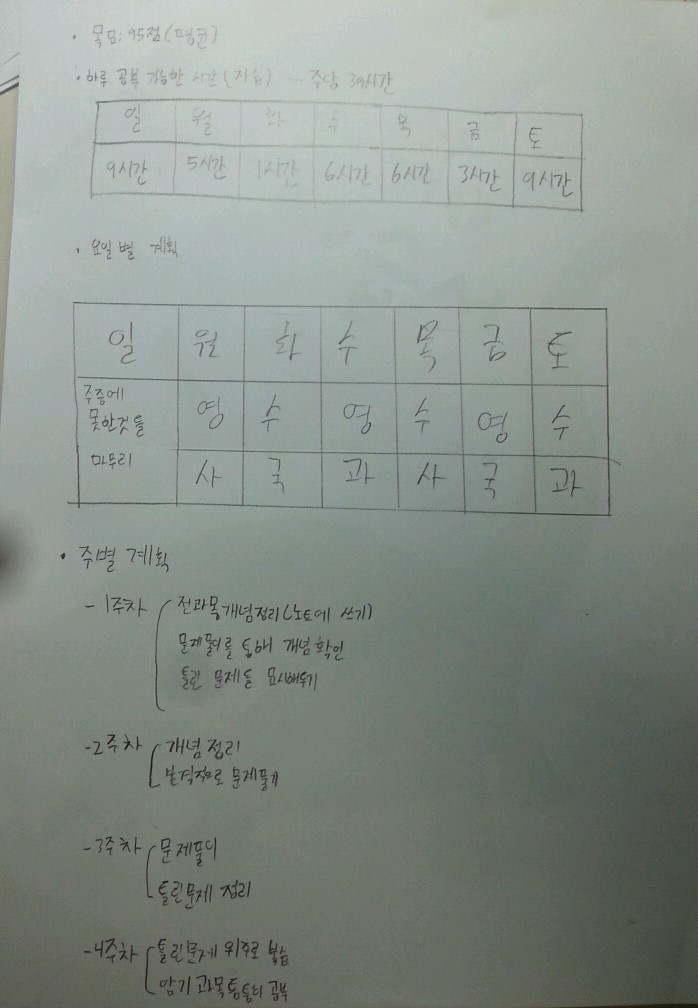 · 목표: 95점 (평균)
· 하루 공부 가능한 시간 (자습) - 주당 39시간
일 월 화 수 목 금 토
9시간 5시간 1시간 6시간 6시간 3시간 9시간
· 요일별 계획
일 월 화 수 목 금 토
주중에 못한것을 마무리 영 수 영 수 영 수
사 국 과 사 국 과
· 주별 계획
-1주차 전과목 개념정리(노트에 쓰기)
문제풀이를 통해 개념확인
틀린 문제들
-2주차 개념정리
본격적으로 문제풀기
-3주차 문제풀이
틀린문제 정리
-4주차 틀린문제 위주로 복습
암기 과목 틈틈히 공부